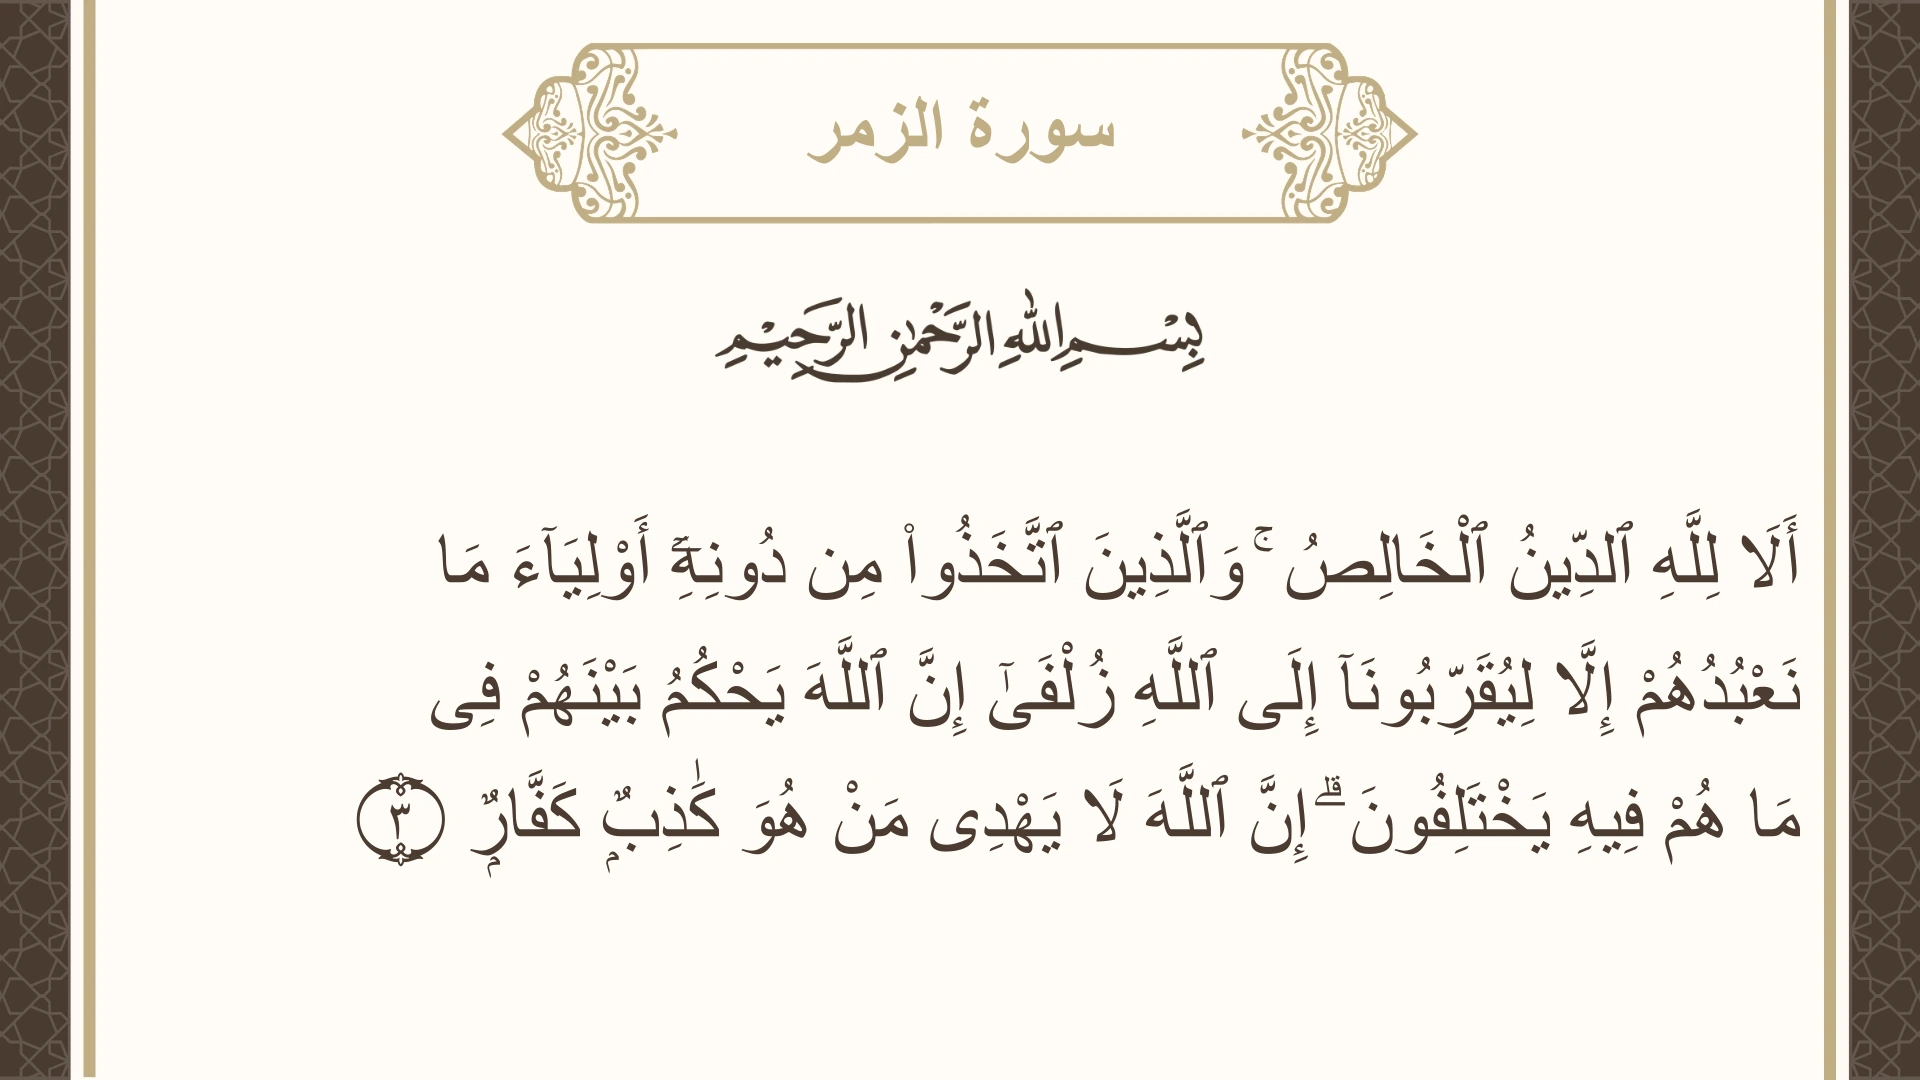 سورة الزمر
بِسْمِ اللهِ الرَّحْمٰنِ الرَّحِيْمِ
أَلَا لِلَّهِ ٱلدِّينُ ٱلْخَالِصُ ۚ وَٱلَّذِينَ ٱتَّخَذُوا۟ مِن دُونِهِۦٓ أَوْلِيَآءَ مَا
نَعْبُدُهُمْ إِلَّا لِيُقَرِّبُونَآ إِلَى ٱللَّهِ زُلْفَىٰٓ إِنَّ ٱللَّهَ يَحْكُمُ بَيْنَهُمْ فِى
مَا هُمْ فِيهِ يَخْتَلِفُونَ ۗ إِنَّ ٱللَّهَ لَا يَهْدِى مَنْ هُوَ كَٰذِبٌۭ كَفَّارٌۭ ٣